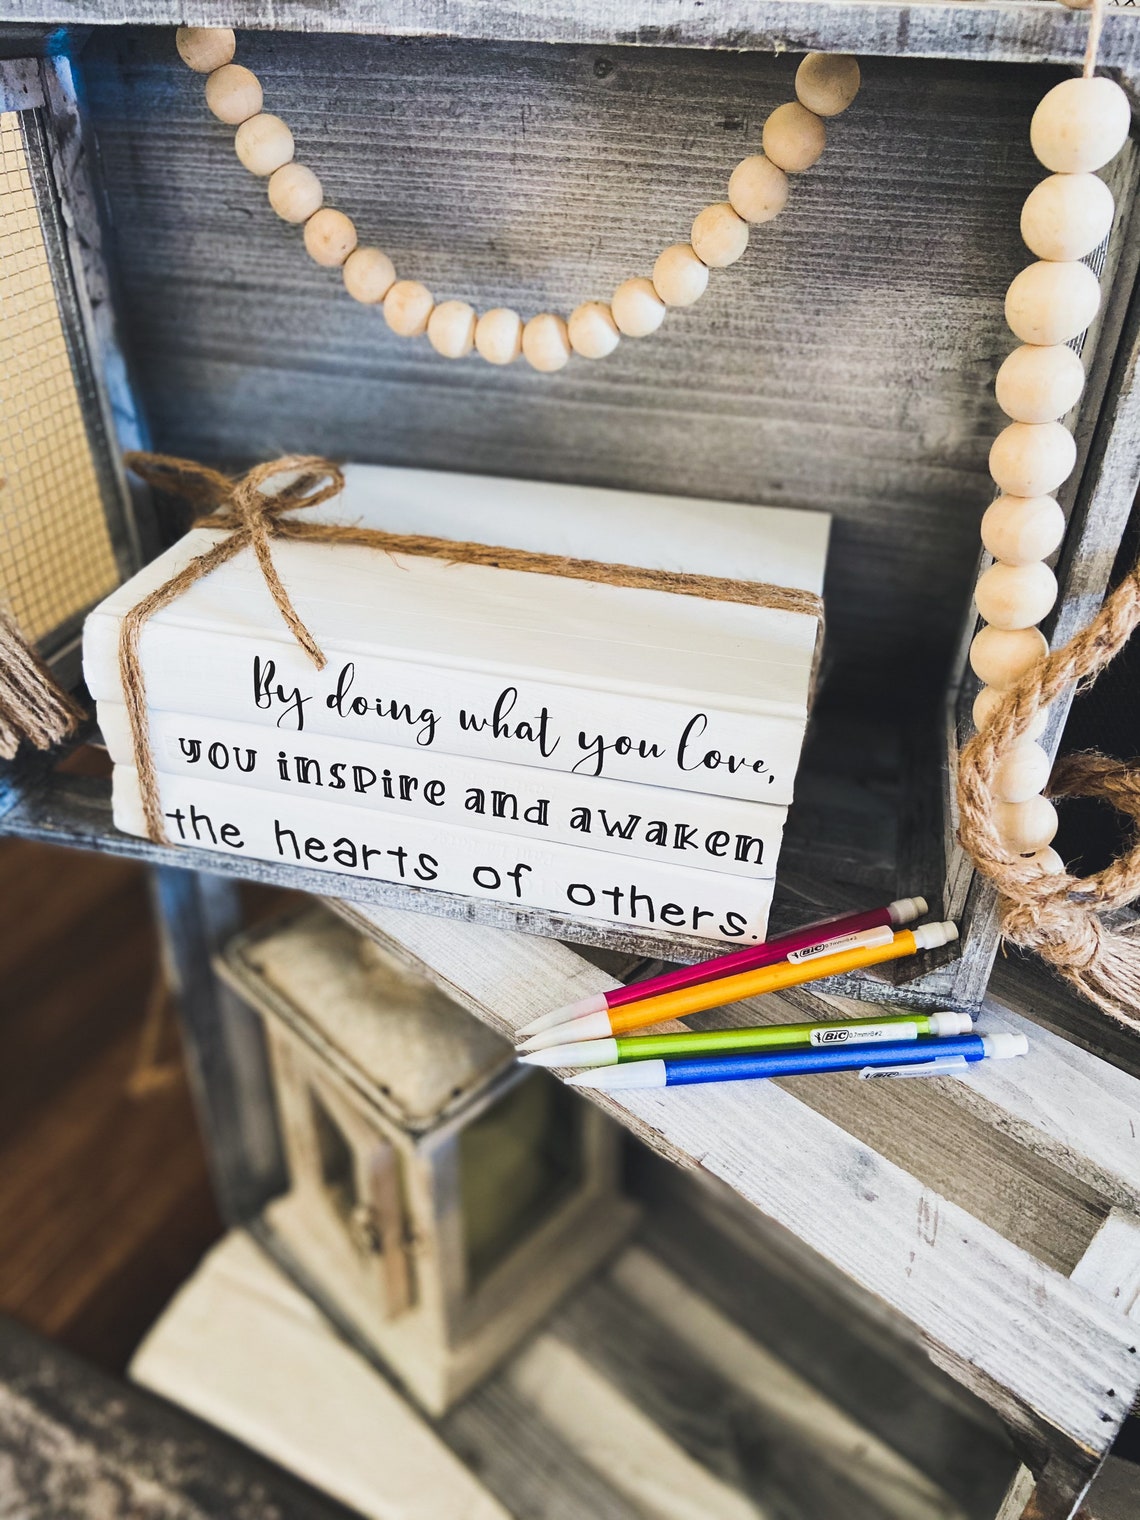 By doing what you love,
you inspire and awaken
the hearts of others.
BIC 0.7mm
BIC 0.7mm
BIC